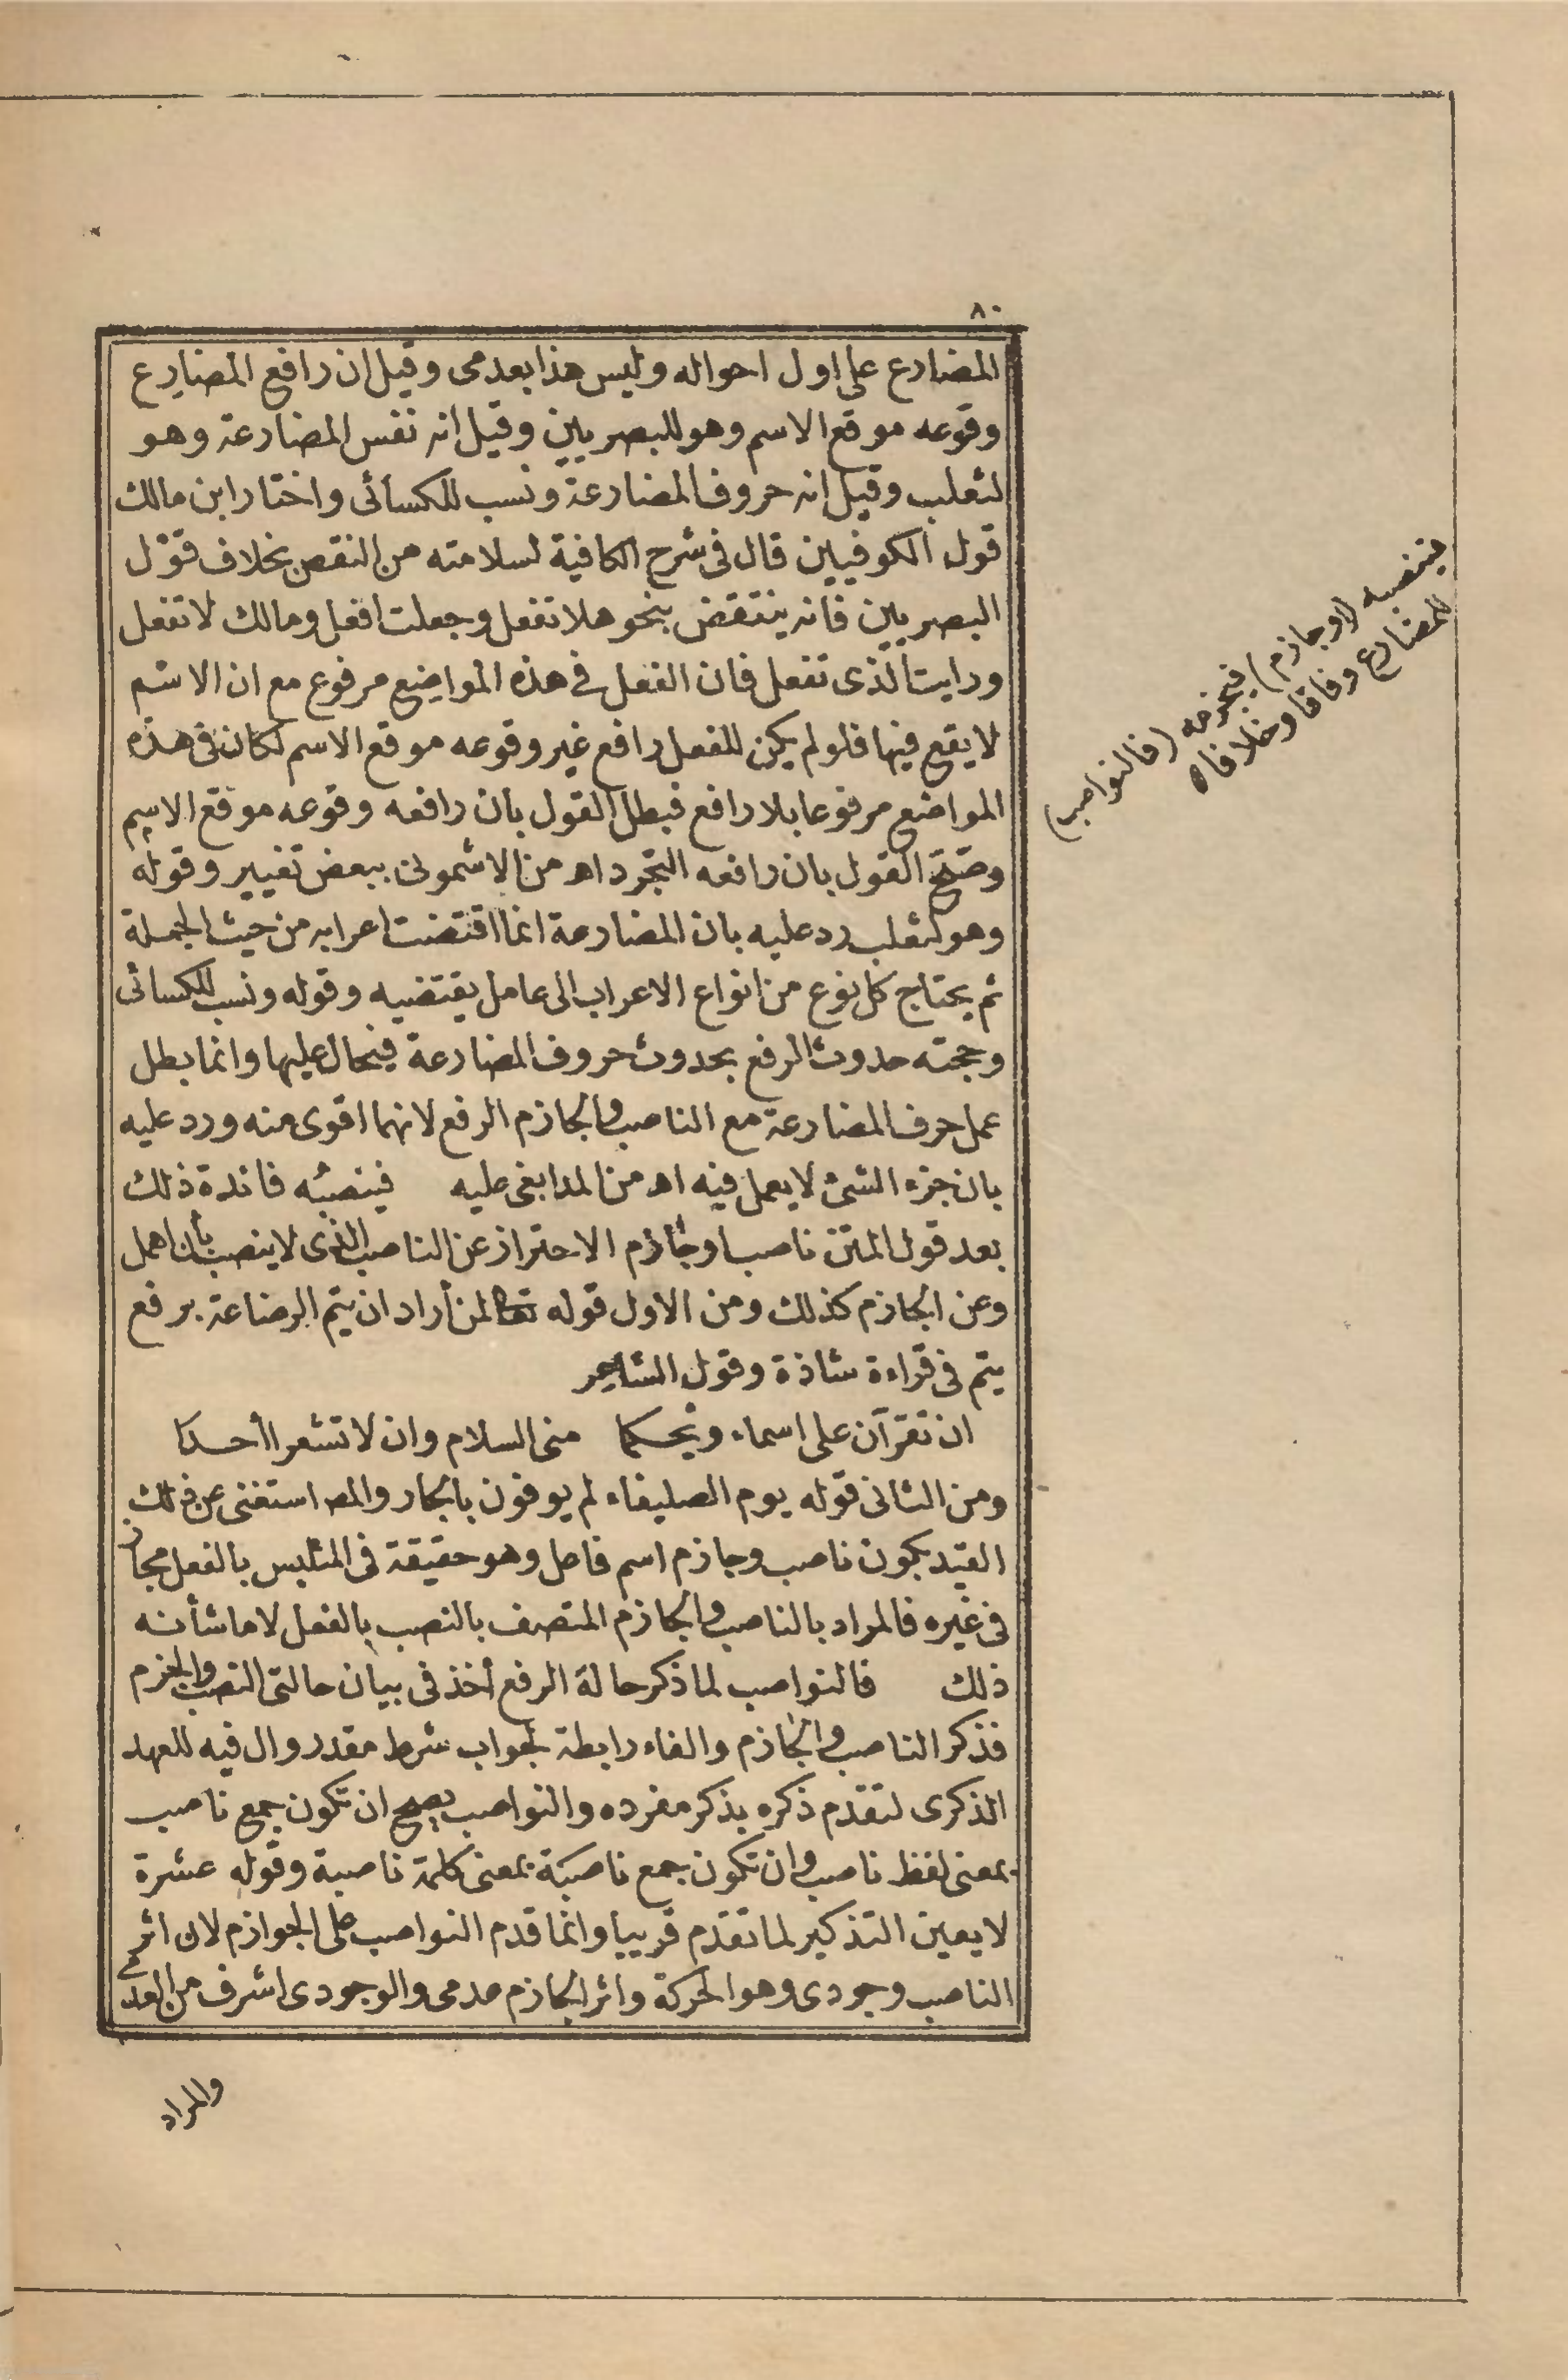 ٨٠
المضارع على اول احواله وليس هذا بعدمى وقيل ان رافع المضارع
وقوعه موقع الاسم وهو للبصريين وقيل انه نفس المضارعة وهو
لثعلب وقيل انه حروف المضارعة ونسب للكسائى واختار ابن مالك
قول الكوفيين قال فى شرح الكافية لسلامته من النقض بخلاف قول
البصريين فانه ينتقض بنحو هلا تفعل وجعلت افعل ومالك لا تفعل
ورايت الذى تفعل فان الفعل فى هذه المواضع مرفوع مع ان الاسم
لا يقع فيها فلو لم يكن للفعل رافع غير وقوعه موقع الاسم لكان فى هذه
المواضع مرفوعا بلا رافع فبطل القول بان رافعه وقوعه موقع الاسم
وصح القول بان رافعه التجرد اهـ من الاشمونى ببعض تغيير وقوله
وهو لثعلب رد عليه بان المضارعة انما اقتضت اعرابه من حيث الجملة
ثم يحتاج كل نوع من انواع الاعراب الى عامل يقتضيه وقوله ونسب للكسائى
وحجته حدوث الرفع بحدوث حروف المضارعة فيحال عليها وانما بطل
عمل حرف المضارعة مع الناصب والجازم الرفع لانهما اقوى منه ورد عليه
بان جزء الشئ لا يعمل فيه اهـ من المدابغى عليه فينصبه فائدة ذلك
بعد قول المتن ناصب او جازم الاحتراز عن الناصب الذى لا ينصب بأن اهمل
وعن الجازم كذلك ومن الاول قوله تعالى لمن أراد ان يتم الرضاعة برفع
يتم فى قراءة شاذة وقول الشاعر
ان تقرآن على اسماء ويحكما منى السلام وان لا تشعرا أحدا
ومن الثانى قوله يوم الصليفاء لم يوفون بالجار والمص استغنى عن ذلك
القيد بكون ناصب وجازم اسم فاعل وهو حقيقة فى المتلبس بالفعل مجاز
فى غيره فالمراد بالناصب والجازم المتصف بالنصب بالفعل لا ما شأنه
ذلك فالنواصب لما ذكر حالة الرفع أخذ فى بيان حالتى النصب والجزم
فذكر الناصب والجازم والفاء رابطة لجواب شرط مقدر وال فيه للعهد
الذكرى لتقدم ذكره بذكر مفرده والنواصب يصح ان تكون جمع ناصب
بمعنى لفظ ناصب وان تكون جمع ناصبة بمعنى كلمة ناصبة وقوله عشرة
لا يعين التذكير لما تقدم قريبا وانما قدم النواصب على الجوازم لان اثر
الناصب وجودى وهو الحركة واثر الجازم عدمى والوجودى اشرف من العدمى
والمراد
فينصبه (او جازم) فيجزمه (فالنواصب)
للمضارع وفاقا وخلافا ه